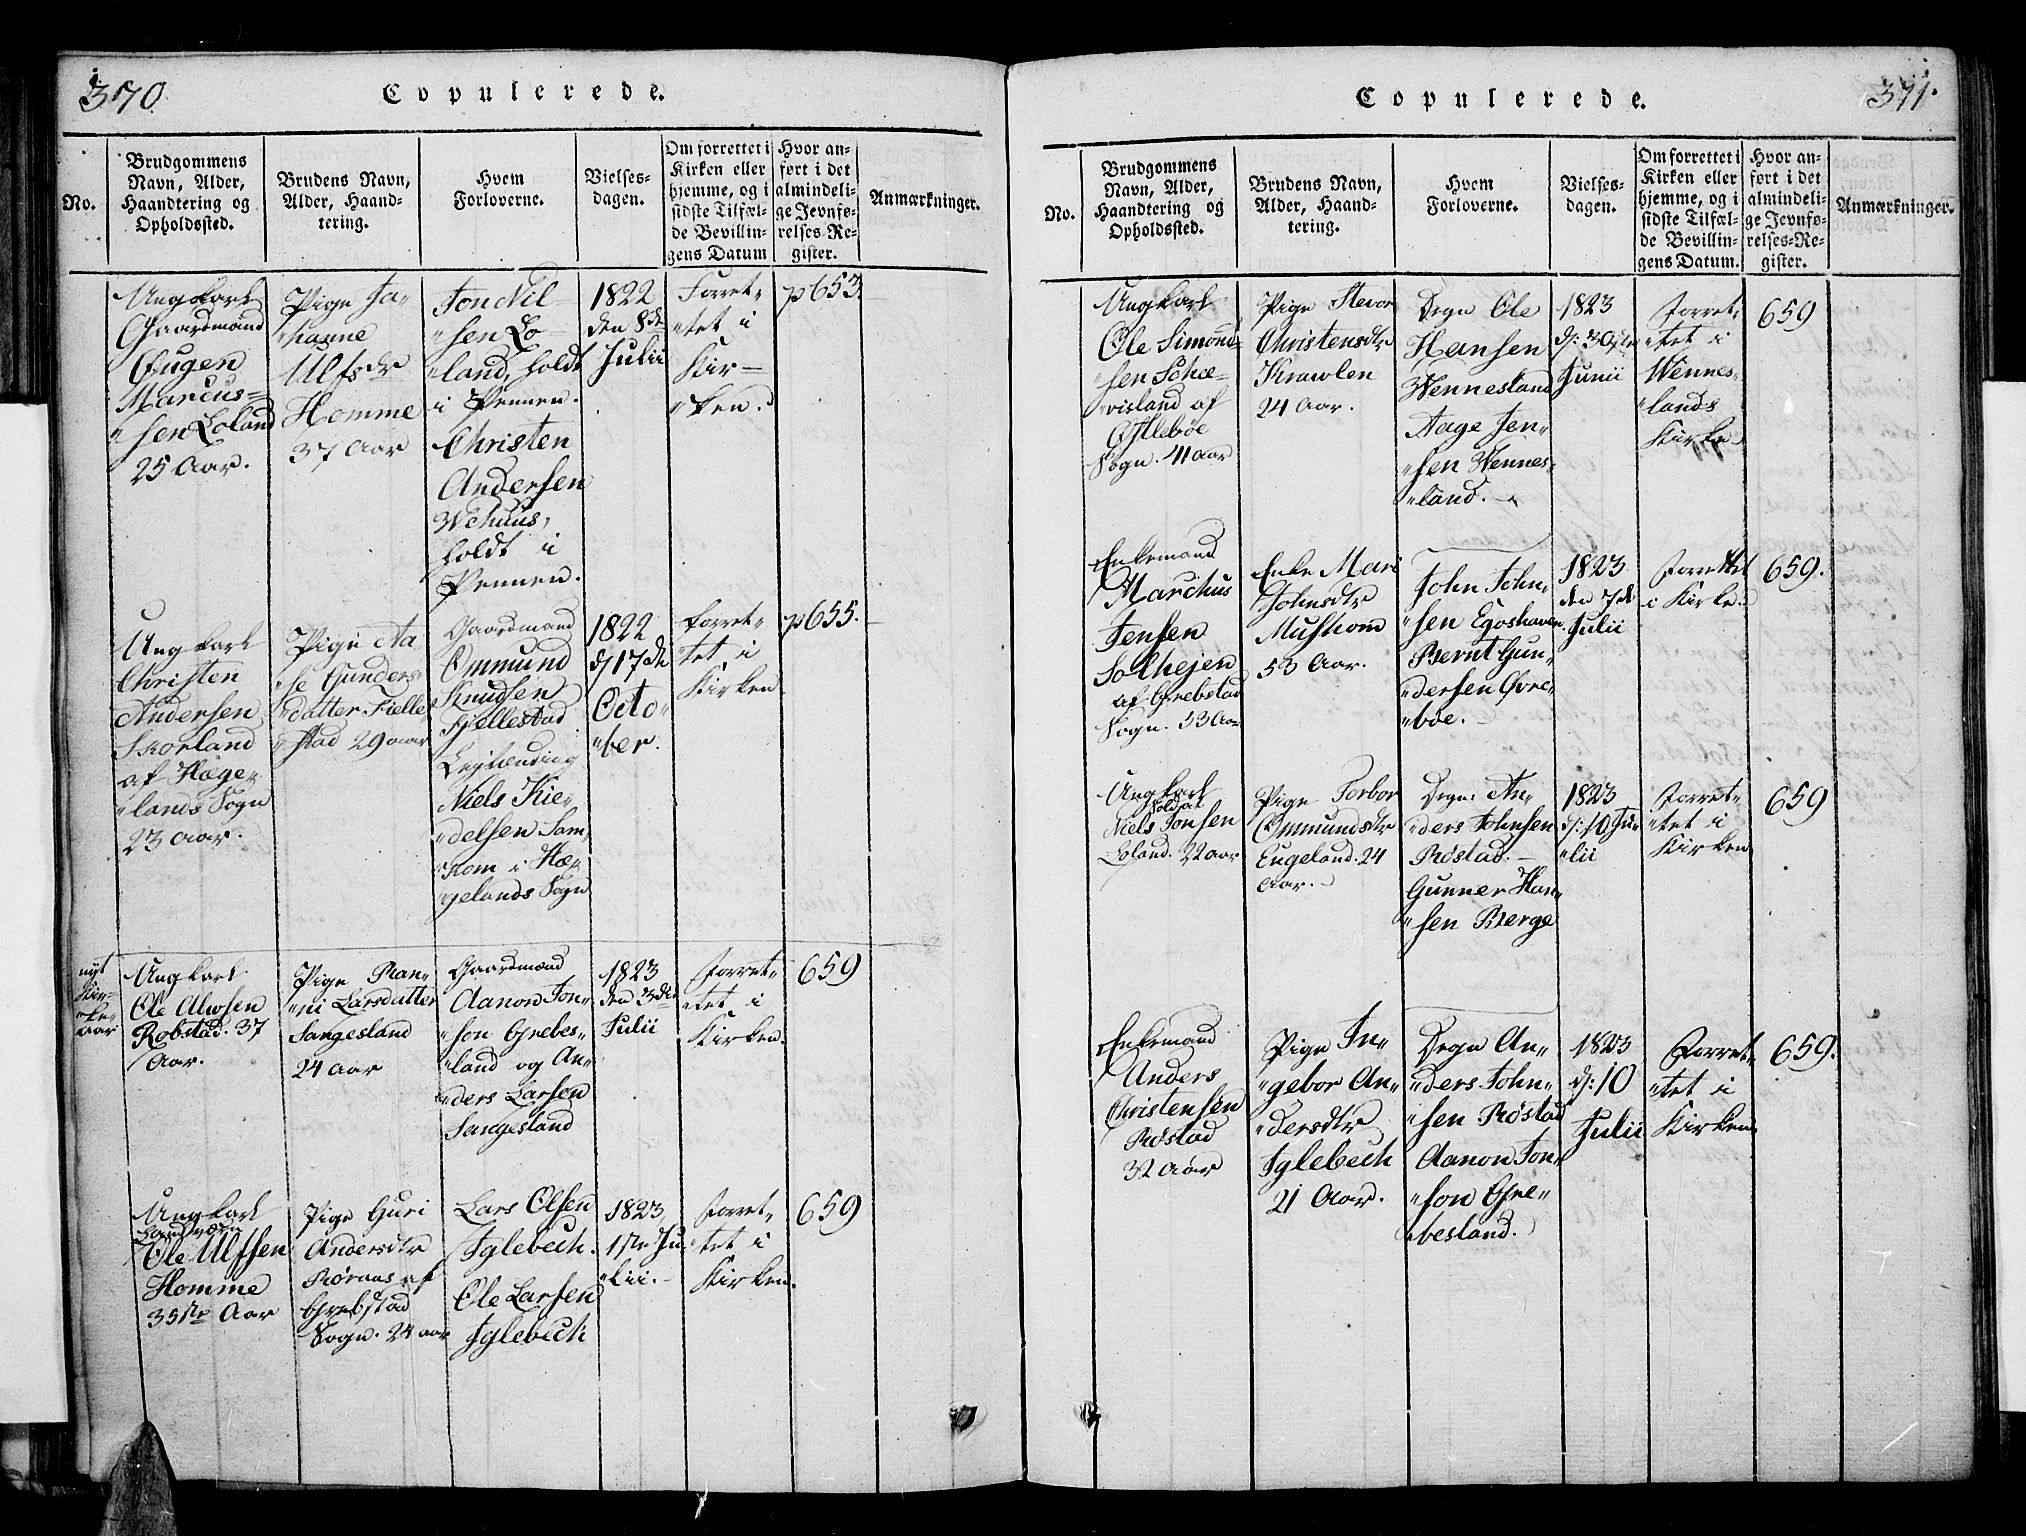 370
Copulerede.
No.
Brudgommens
Navn, Alder,
Haandtering og
Opholdssted.
Brudens Navn,
Alder, Haand-
tering.
Hvem
Forloverne.
Vielses-
dagen.
Om forrettet i
Kirken eller
hjemme, og i
sidste Tilfæl-
de Bevillin-
gens Datum
Hvor an-
ført i det
almindeli-
ge Jevnfø-
relses-Re-
gister.
Anmærkninger.
Ungkarl
Gaardmand
Eugen
Marcus-
sen Loland
25 Aar.
Pige Jo-
hanne
Ulfsdr
Homme
37 Aar
Jon Nil-
sen Lo-
land, holdt
i Pennen.
Christen
Andersen
Wehuus,
holdt i
Pennen.
1822
den 8de
Julii
Forret-
tet i
Kir-
ken.
p 653.
Ungkarl
Christen
Andersen
Skorland
af Hæge-
lands Sogn
23 Aar.
Pige Aa
se Gunders
datter Fielle
stad 29 aar
Gaardmand
Ommund
Knudsen
Fjellestad
Niels Kie-
delsen Sam-
kom i Hæ-
gelands Sogn
1822
d 17de
Octo-
ber.
forret-
tet i
Kirken
p 655.
nyt
Kir-
ke-
aar
Ungkarl
Ole Alwsen
Robstad. 37
Aar.
Pige Ran-
ni Larsdatter
Sangesland
24 Aar
Gaardmænd
Aanon Jon-
son Grebes-
land og An-
ders Larsen
Sangesland
1823
den 3die
Julii
Forret-
tet i
Kirken.
659
Ungkarl
Ole Ulfsen
Homme
35ste Aar
Pige Guri
Andersdtr
Rørnas af
Grebstad
Sogn. 24 aar
Lars Olsen
Iglebech.
Ole Larsen
Iglebech
1823
1ste Ju-
lii.
Forret-
tet i
Kirken.
659
371.
Copulerede.
No.
Brudgommens
Navn, Alder,
Haandtering og
Opholdssted.
Brudens Navn,
Alder, Haand-
tering.
Hvem
Forloverne.
Vielses-
dagen.
Om forrettet i
Kirken eller
hjemme, og i
sidste Tilfæl-
de Bevillin-
gens Datum.
Hvor an-
ført i det
almindeli-
ge Jevnfø-
relses-Re-
gister.
Anmærkninger.
Ungkarl
Ole Simond-
sen Schæ-
visland af
Øfslebøe
Sogn. 41 aar
Pige Stevor
Christensdtr
Krawlen
24 Aar.
Degn Ole
Hansen
Wennesland
Aage Jen-
sen Wennes-
land.
1823
d: 30te
Junii
Forret-
tet i
Wennes-
lands
Kirke
659
Enkemand
Marchus
Jensen
Solhejen
af Grebstad
Sogn. 53 Aar
Enke Mari
Johnsdtr
Mushom
53 Aar.
John John-
sen Egoshaven.
Bernt Gun-
dersen Øvre-
bøe.
1823
den 7de
Julii
Forrettet
i Kirken
659.
Ungkarl
Soldat
Niels Jonsen
Loland. 22 aar
Pige Torbor
Ommundsdtr
Eugeland. 24
Aar.
Degn An-
ders Johnsen
Røstad.
Gunner Han-
sen Berge
1823
d: 10 Ju-
lii
Forret-
tet i
Kirken
659
Enkemand
Anders
Christensen
Røstad
32 Aar
Pige In-
gebor An-
dersdtr
Iglebech
21 Aar.
Degn An-
ders John-
sen Røstad
Aanon Jon-
son Gre-
besland.
1823
d: 10
Julii
Forret-
tet i
Kirken
659.